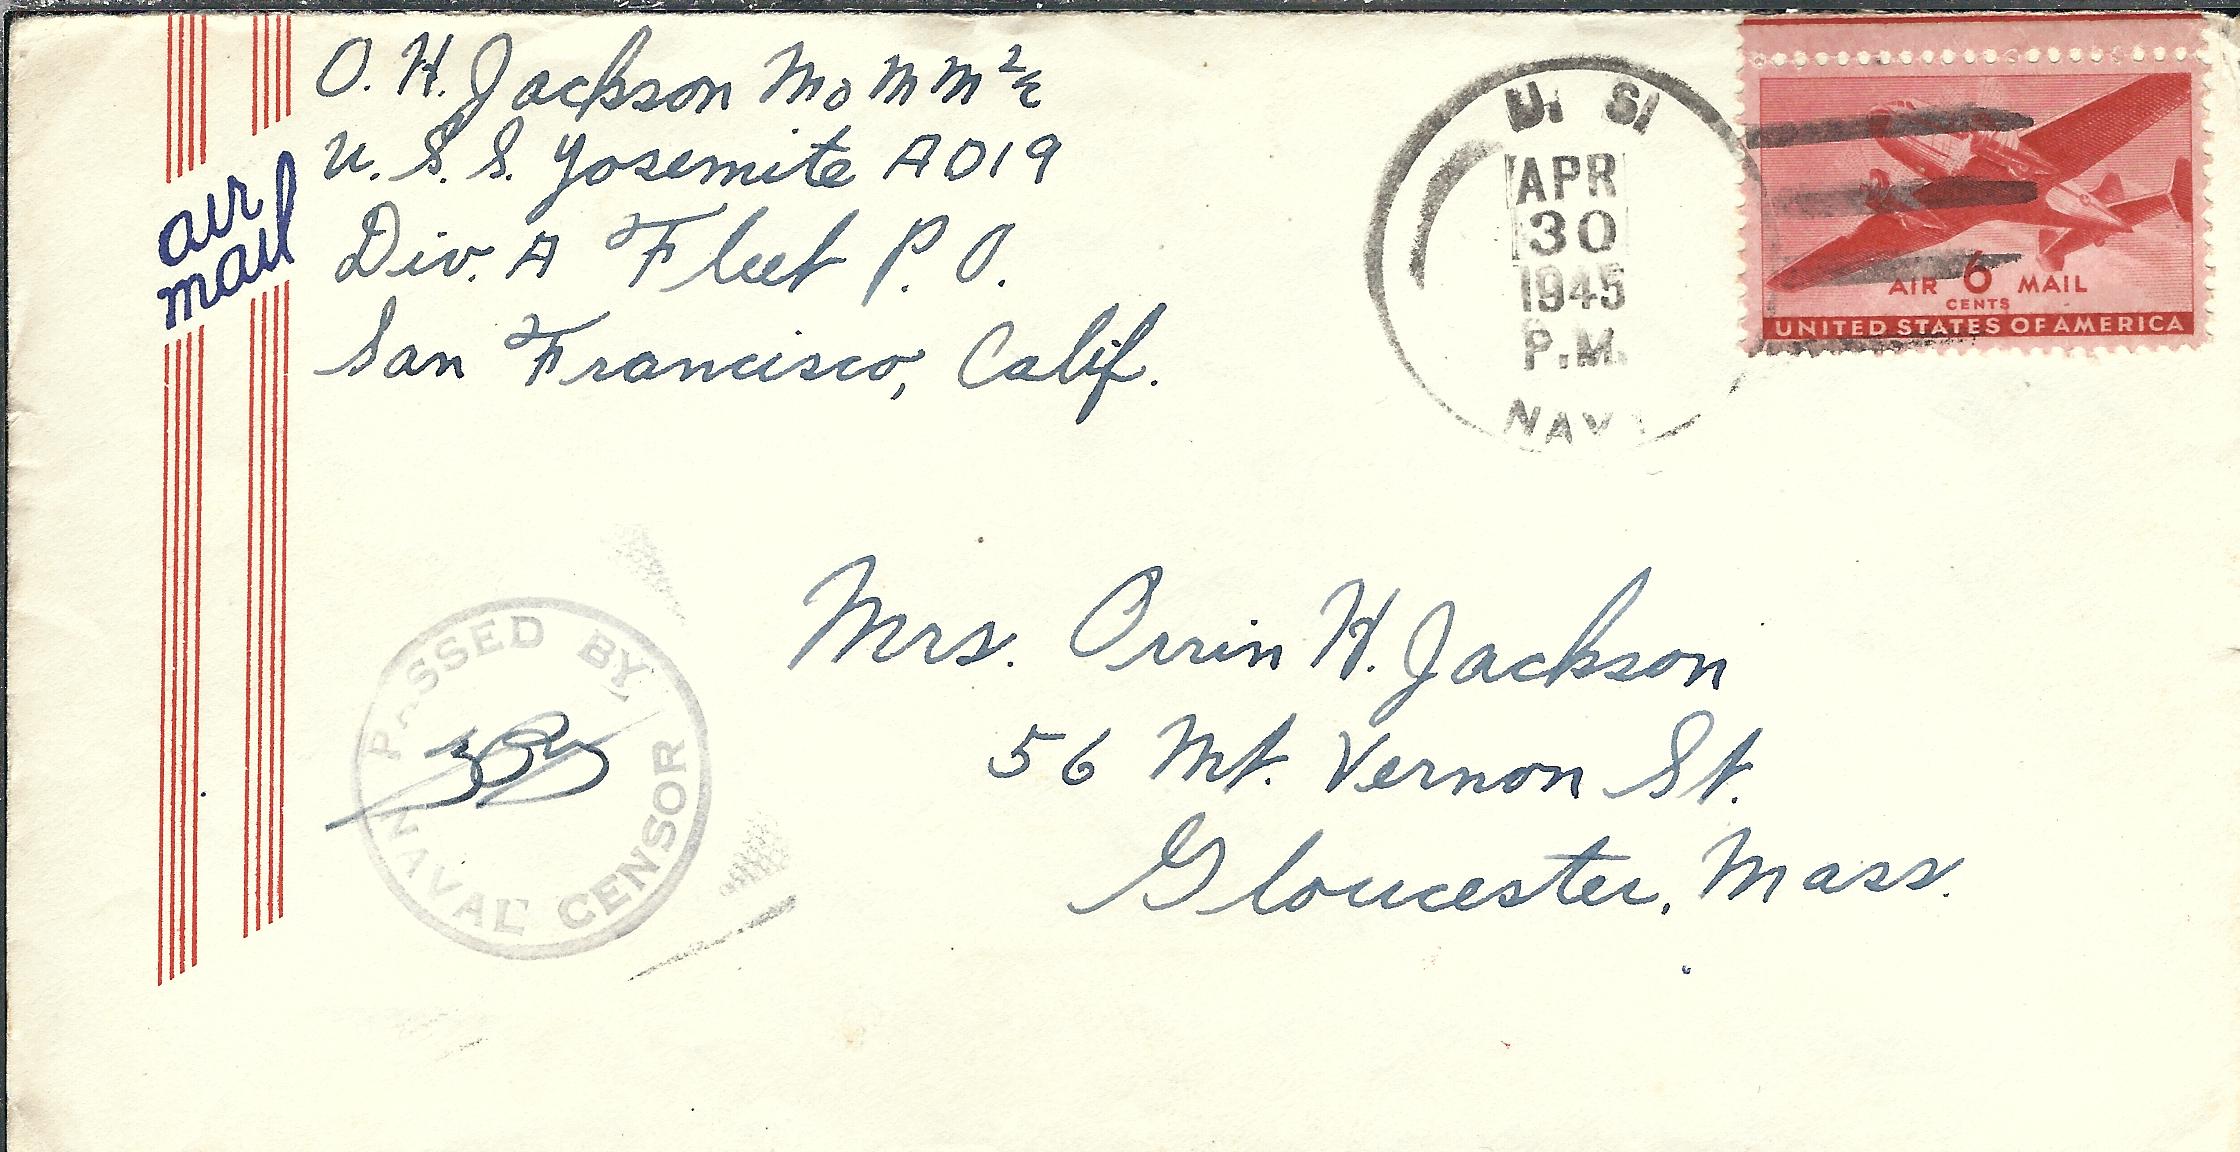 O. H. Jackson MoMM 2/c
U.S.S. Yosemite AD19
Div. A Fleet P.O.
San Francisco, Calif.
air
mail
U. S.
APR
30
1945
P.M.
NAVY
AIR 6 MAIL
CENTS
UNITED STATES OF AMERICA
PASSED BY
NAVAL CENSOR
Mrs. Orrin H. Jackson
56 Mt. Vernon St.
Gloucester, Mass.